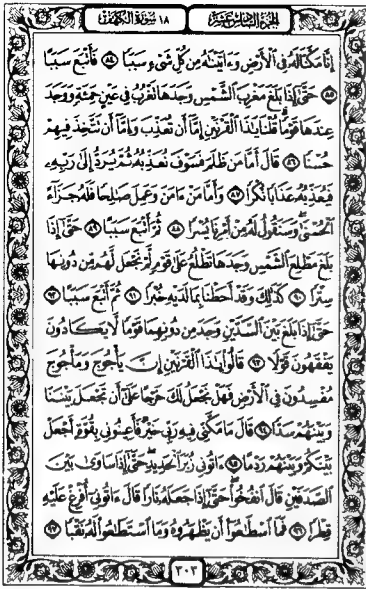 الجزء السادس عشر
١٨ سورة الكهف
إِنَّا مَكَّنَّا لَهُۥ فِى ٱلْأَرْضِ وَءَاتَيْنَـٰهُ مِن كُلِّ شَىْءٍ سَبَبًا ﴿٨٤﴾ فَأَتْبَعَ سَبَبًا
﴿٨٥﴾ حَتَّىٰٓ إِذَا بَلَغَ مَغْرِبَ ٱلشَّمْسِ وَجَدَهَا تَغْرُبُ فِى عَيْنٍ حَمِئَةٍ وَوَجَدَ
عِندَهَا قَوْمًا ۗ قُلْنَا يَـٰذَا ٱلْقَرْنَيْنِ إِمَّآ أَن تُعَذِّبَ وَإِمَّآ أَن تَتَّخِذَ فِيهِمْ
حُسْنًا ﴿٨٦﴾ قَالَ أَمَّا مَن ظَلَمَ فَسَوْفَ نُعَذِّبُهُۥ ثُمَّ يُرَدُّ إِلَىٰ رَبِّهِۦ
فَيُعَذِّبُهُۥ عَذَابًا نُّكْرًا ﴿٨٧﴾ وَأَمَّا مَنْ ءَامَنَ وَعَمِلَ صَـٰلِحًا فَلَهُۥ جَزَآءً
ٱلْحُسْنَىٰ ۖ وَسَنَقُولُ لَهُۥ مِنْ أَمْرِنَا يُسْرًا ﴿٨٨﴾ ثُمَّ أَتْبَعَ سَبَبًا ﴿٨٩﴾ حَتَّىٰٓ إِذَا
بَلَغَ مَطْلِعَ ٱلشَّمْسِ وَجَدَهَا تَطْلُعُ عَلَىٰ قَوْمٍ لَّمْ نَجْعَل لَّهُم مِّن دُونِهَا
سِتْرًا ﴿٩٠﴾ كَذَٰلِكَ وَقَدْ أَحَطْنَا بِمَا لَدَيْهِ خُبْرًا ﴿٩١﴾ ثُمَّ أَتْبَعَ سَبَبًا ﴿٩٢﴾
حَتَّىٰٓ إِذَا بَلَغَ بَيْنَ ٱلسَّدَّيْنِ وَجَدَ مِن دُونِهِمَا قَوْمًا لَّا يَكَادُونَ
يَفْقَهُونَ قَوْلًا ﴿٩٣﴾ قَالُوا۟ يَـٰذَا ٱلْقَرْنَيْنِ إِنَّ يَأْجُوجَ وَمَأْجُوجَ
مُفْسِدُونَ فِى ٱلْأَرْضِ فَهَلْ نَجْعَلُ لَكَ خَرْجًا عَلَىٰٓ أَن تَجْعَلَ بَيْنَنَا
وَبَيْنَهُمْ سَدًّا ﴿٩٤﴾ قَالَ مَا مَكَّنِّى فِيهِ رَبِّى خَيْرٌ فَأَعِينُونِى بِقُوَّةٍ أَجْعَلْ
بَيْنَكُمْ وَبَيْنَهُمْ رَدْمًا ﴿٩٥﴾ ءَاتُونِى زُبَرَ ٱلْحَدِيدِ ۖ حَتَّىٰٓ إِذَا سَاوَىٰ بَيْنَ
ٱلصَّدَفَيْنِ قَالَ ٱنفُخُوا۟ ۖ حَتَّىٰٓ إِذَا جَعَلَهُۥ نَارًا قَالَ ءَاتُونِىٓ أُفْرِغْ عَلَيْهِ
قِطْرًا ﴿٩٦﴾ فَمَا ٱسْطَـٰعُوٓا۟ أَن يَظْهَرُوهُ وَمَا ٱسْتَطَـٰعُوا۟ لَهُۥ نَقْبًا ﴿٩٧﴾
٣٠٣